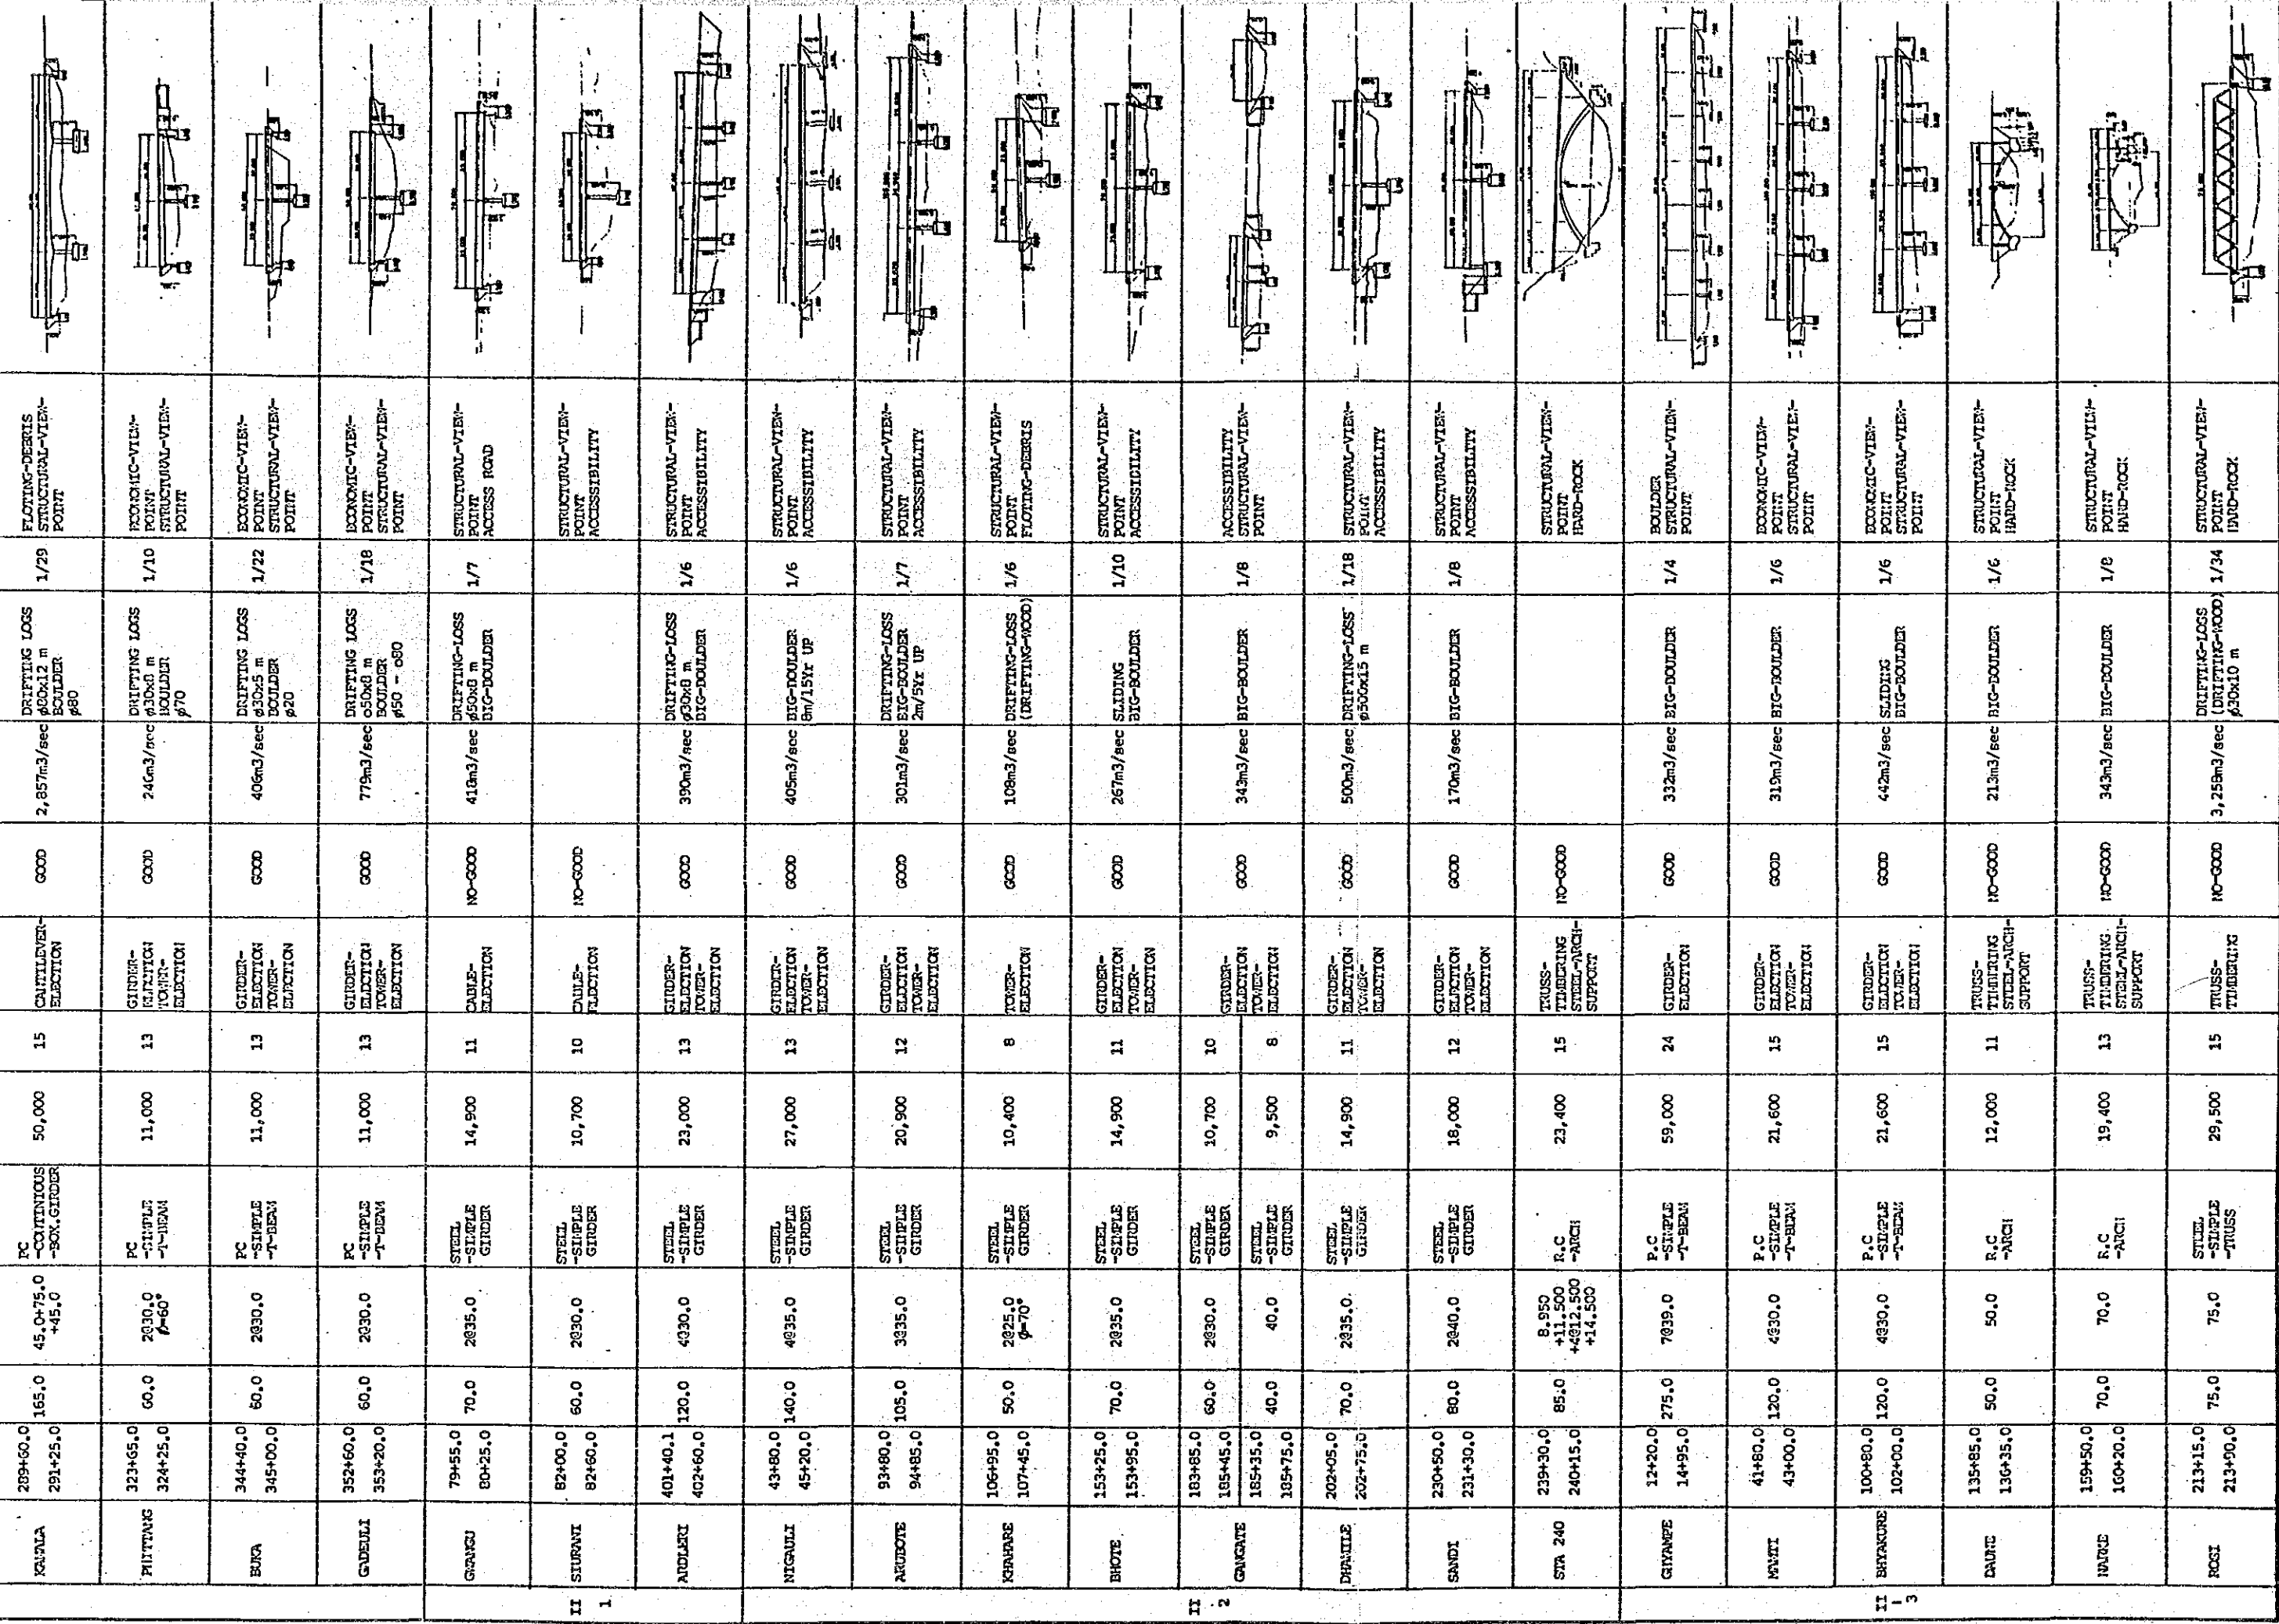 KAWALA
289+60.0
291+25.0
165.0
45.0+75.0
+45.0
PC
-CONTINIOUS
-BOX.GIRDER
50,000
15
CANTILEVER-
ELECTION
GOOD
2,857m3/sec
DRIFTING LOGS
ø80x12 m
BOULDER
ø80
1/29
FLOTING-DEBRIS
STRUCTURAL-VIEW-
POINT
323+65.0
324+25.0
60.0
2@30.0
PC
-SIMPLE
-T-BEAM
11,000
13
GIRDER-
ELECTION
TOWER-
ELECTION
GOOD
246m3/sec
DRIFTING LOGS
ø30x8 m
BOULDER
ø70
1/10
ECONOMIC-VIEW-
POINT
STRUCTURAL-VIEW-
POINT
BUKA
344+40.0
345+00.0
60.0
2@30.0
PC
-SIMPLE
-T-BEAM
11,000
13
GIRDER-
ELECTION
TOWER-
ELECTION
GOOD
406m3/sec
DRIFTING LOGS
ø30x5 m
BOULDER
ø20
1/22
ECONOMIC-VIEW-
POINT
STRUCTURAL-VIEW-
POINT
GADEULI
352+60.0
353+20.0
60.0
2@30.0
PC
-SIMPLE
-T-BEAM
11,000
13
GIRDER-
ELECTION
TOWER-
ELECTION
GOOD
779m3/sec
DRIFTING LOGS
ø50x8 m
BOULDER
ø50 - ø80
1/18
ECONOMIC-VIEW-
POINT
STRUCTURAL-VIEW-
POINT
II
1
79+55.0
80+25.0
70.0
2@35.0
STEEL
-SIMPLE
GIRDER
14,900
11
CABLE-
ELECTION
NO-GOOD
418m3/sec
DRIFTING-LOSS
ø50x8 m
BIG-BOULDER
1/7
STRUCTURAL-VIEW-
POINT
ACCESS ROAD
SIURANI
82+00.0
82+60.0
60.0
2@30.0
STEEL
-SIMPLE
GIRDER
10,700
10
CABLE-
ELECTION
NO-GOOD
STRUCTURAL-VIEW-
POINT
ACCESSIBILITY
ARDLERI
401+40.1
402+60.0
120.0
4@30.0
STEEL
-SIMPLE
GIRDER
23,000
13
GIRDER-
ELECTION
TOWER-
ELECTION
GOOD
390m3/sec
DRIFTING-LOSS
ø30x8 m
BIG-BOULDER
1/6
STRUCTURAL-VIEW-
POINT
ACCESSIBILITY
II
2
NIGAULI
43+80.0
45+20.0
140.0
4@35.0
STEEL
-SIMPLE
GIRDER
27,000
13
GIRDER-
ELECTION
TOWER-
ELECTION
GOOD
405m3/sec
BIG-BOULDER
8m/15Yr UP
1/6
STRUCTURAL-VIEW-
POINT
ACCESSIBILITY
ARUBOTE
93+80.0
94+85.0
105.0
3@35.0
STEEL
-SIMPLE
GIRDER
20,900
12
GIRDER-
ELECTION
TOWER-
ELECTION
GOOD
301m3/sec
DRIFTING-LOSS
BIG-BOULDER
2m/5Yr UP
1/7
STRUCTURAL-VIEW-
POINT
ACCESSIBILITY
KHAHARE
106+95.0
107+45.0
50.0
2@25.0
ø=70°
STEEL
-SIMPLE
GIRDER
10,400
8
TOWER-
ELECTION
GOOD
108m3/sec
DRIFTING-LOSS
(DRIFTING-WOOD)
1/6
STRUCTURAL-VIEW-
POINT
FLOTING-DEBRIS
BHOTE
153+25.0
153+95.0
70.0
2@35.0
STEEL
-SIMPLE
GIRDER
14,900
11
GIRDER-
ELECTION
TOWER-
ELECTION
GOOD
267m3/sec
SLIDING
BIG-BOULDER
1/10
STRUCTURAL-VIEW-
POINT
ACCESSIBILITY
GANGATE
183+85.0
185+45.0
60.0
2@30.0
STEEL
-SIMPLE
GIRDER
10,700
10
185+35.0
185+75.0
40.0
40.0
STEEL
-SIMPLE
GIRDER
9,500
8
GIRDER-
ELECTION
TOWER-
ELECTION
GOOD
343m3/sec
BIG-BOULDER
1/8
ACCESSIBILITY
STRUCTURAL-VIEW-
POINT
DHAMILE
202+05.0
202+75.0
70.0
2@35.0
STEEL
-SIMPLE
GIRDER
14,900
11
GIRDER-
ELECTION
TOWER-
ELECTION
GOOD
500m3/sec
DRIFTING-LOSS
ø500x15 m
1/18
STRUCTURAL-VIEW-
POINT
ACCESSIBILITY
SANDI
230+50.0
231+30.0
80.0
2@40.0
STEEL
-SIMPLE
GIRDER
18,000
12
GIRDER-
ELECTION
TOWER-
ELECTION
GOOD
170m3/sec
BIG-BOULDER
1/8
STRUCTURAL-VIEW-
POINT
ACCESSIBILITY
STA 240
239+30.0
240+15.0
85.0
8.950
+11.500
+4@12.500
+14.500
R.C
-ARCH
23,400
15
TRUSS-
TIMBERING
STEEL-ARCH-
SUPPORT
NO-GOOD
STRUCTURAL-VIEW-
POINT
HARD-ROCK
II
-
3
GHYAMPE
12+20.0
14+95.0
275.0
7@39.0
P.C
-SIMPLE
-T-BEAM
59,000
24
GIRDER-
ELECTION
GOOD
332m3/sec
BIG-BOULDER
1/4
BOULDER
STRUCTURAL-VIEW-
POINT
MAMTI
41+80.0
43+00.0
120.0
4@30.0
P.C
-SIMPLE
-T-BEAM
21,600
15
GIRDER-
ELECTION
TOWER-
ELECTION
GOOD
319m3/sec
BIG-BOULDER
1/6
ECONOMIC-VIEW-
POINT
STRUCTURAL-VIEW-
POINT
BHYAKURE
100+80.0
102+00.0
120.0
4@30.0
P.C
-SIMPLE
-T-BEAM
21,600
15
GIRDER-
ELECTION
TOWER-
ELECTION
GOOD
442m3/sec
SLIDING
BIG-BOULDER
1/6
ECONOMIC-VIEW-
POINT
STRUCTURAL-VIEW-
POINT
135+85.0
136+35.0
50.0
50.0
R.C
-ARCH
12,000
11
TRUSS-
TIMBERING
STEEL-ARCH-
SUPPORT
NO-GOOD
213m3/sec
BIG-BOULDER
1/6
STRUCTURAL-VIEW-
POINT
HARD-ROCK
159+50.0
160+20.0
70.0
70.0
R.C
-ARCH
19,400
13
TRUSS-
TIMBERING
STEEL-ARCH-
SUPPORT
NO-GOOD
343m3/sec
BIG-BOULDER
1/8
STRUCTURAL-VIEW-
POINT
HARD-ROCK
ROSI
213+15.0
213+90.0
75.0
75.0
STEEL
-SIMPLE
-TRUSS
29,500
15
TRUSS-
TIMBERING
NO-GOOD
3,258m3/sec
DRIFTING-LOSS
(DRIFTING-WOOD)
ø30x10 m
1/34
STRUCTURAL-VIEW-
POINT
HARD-ROCK